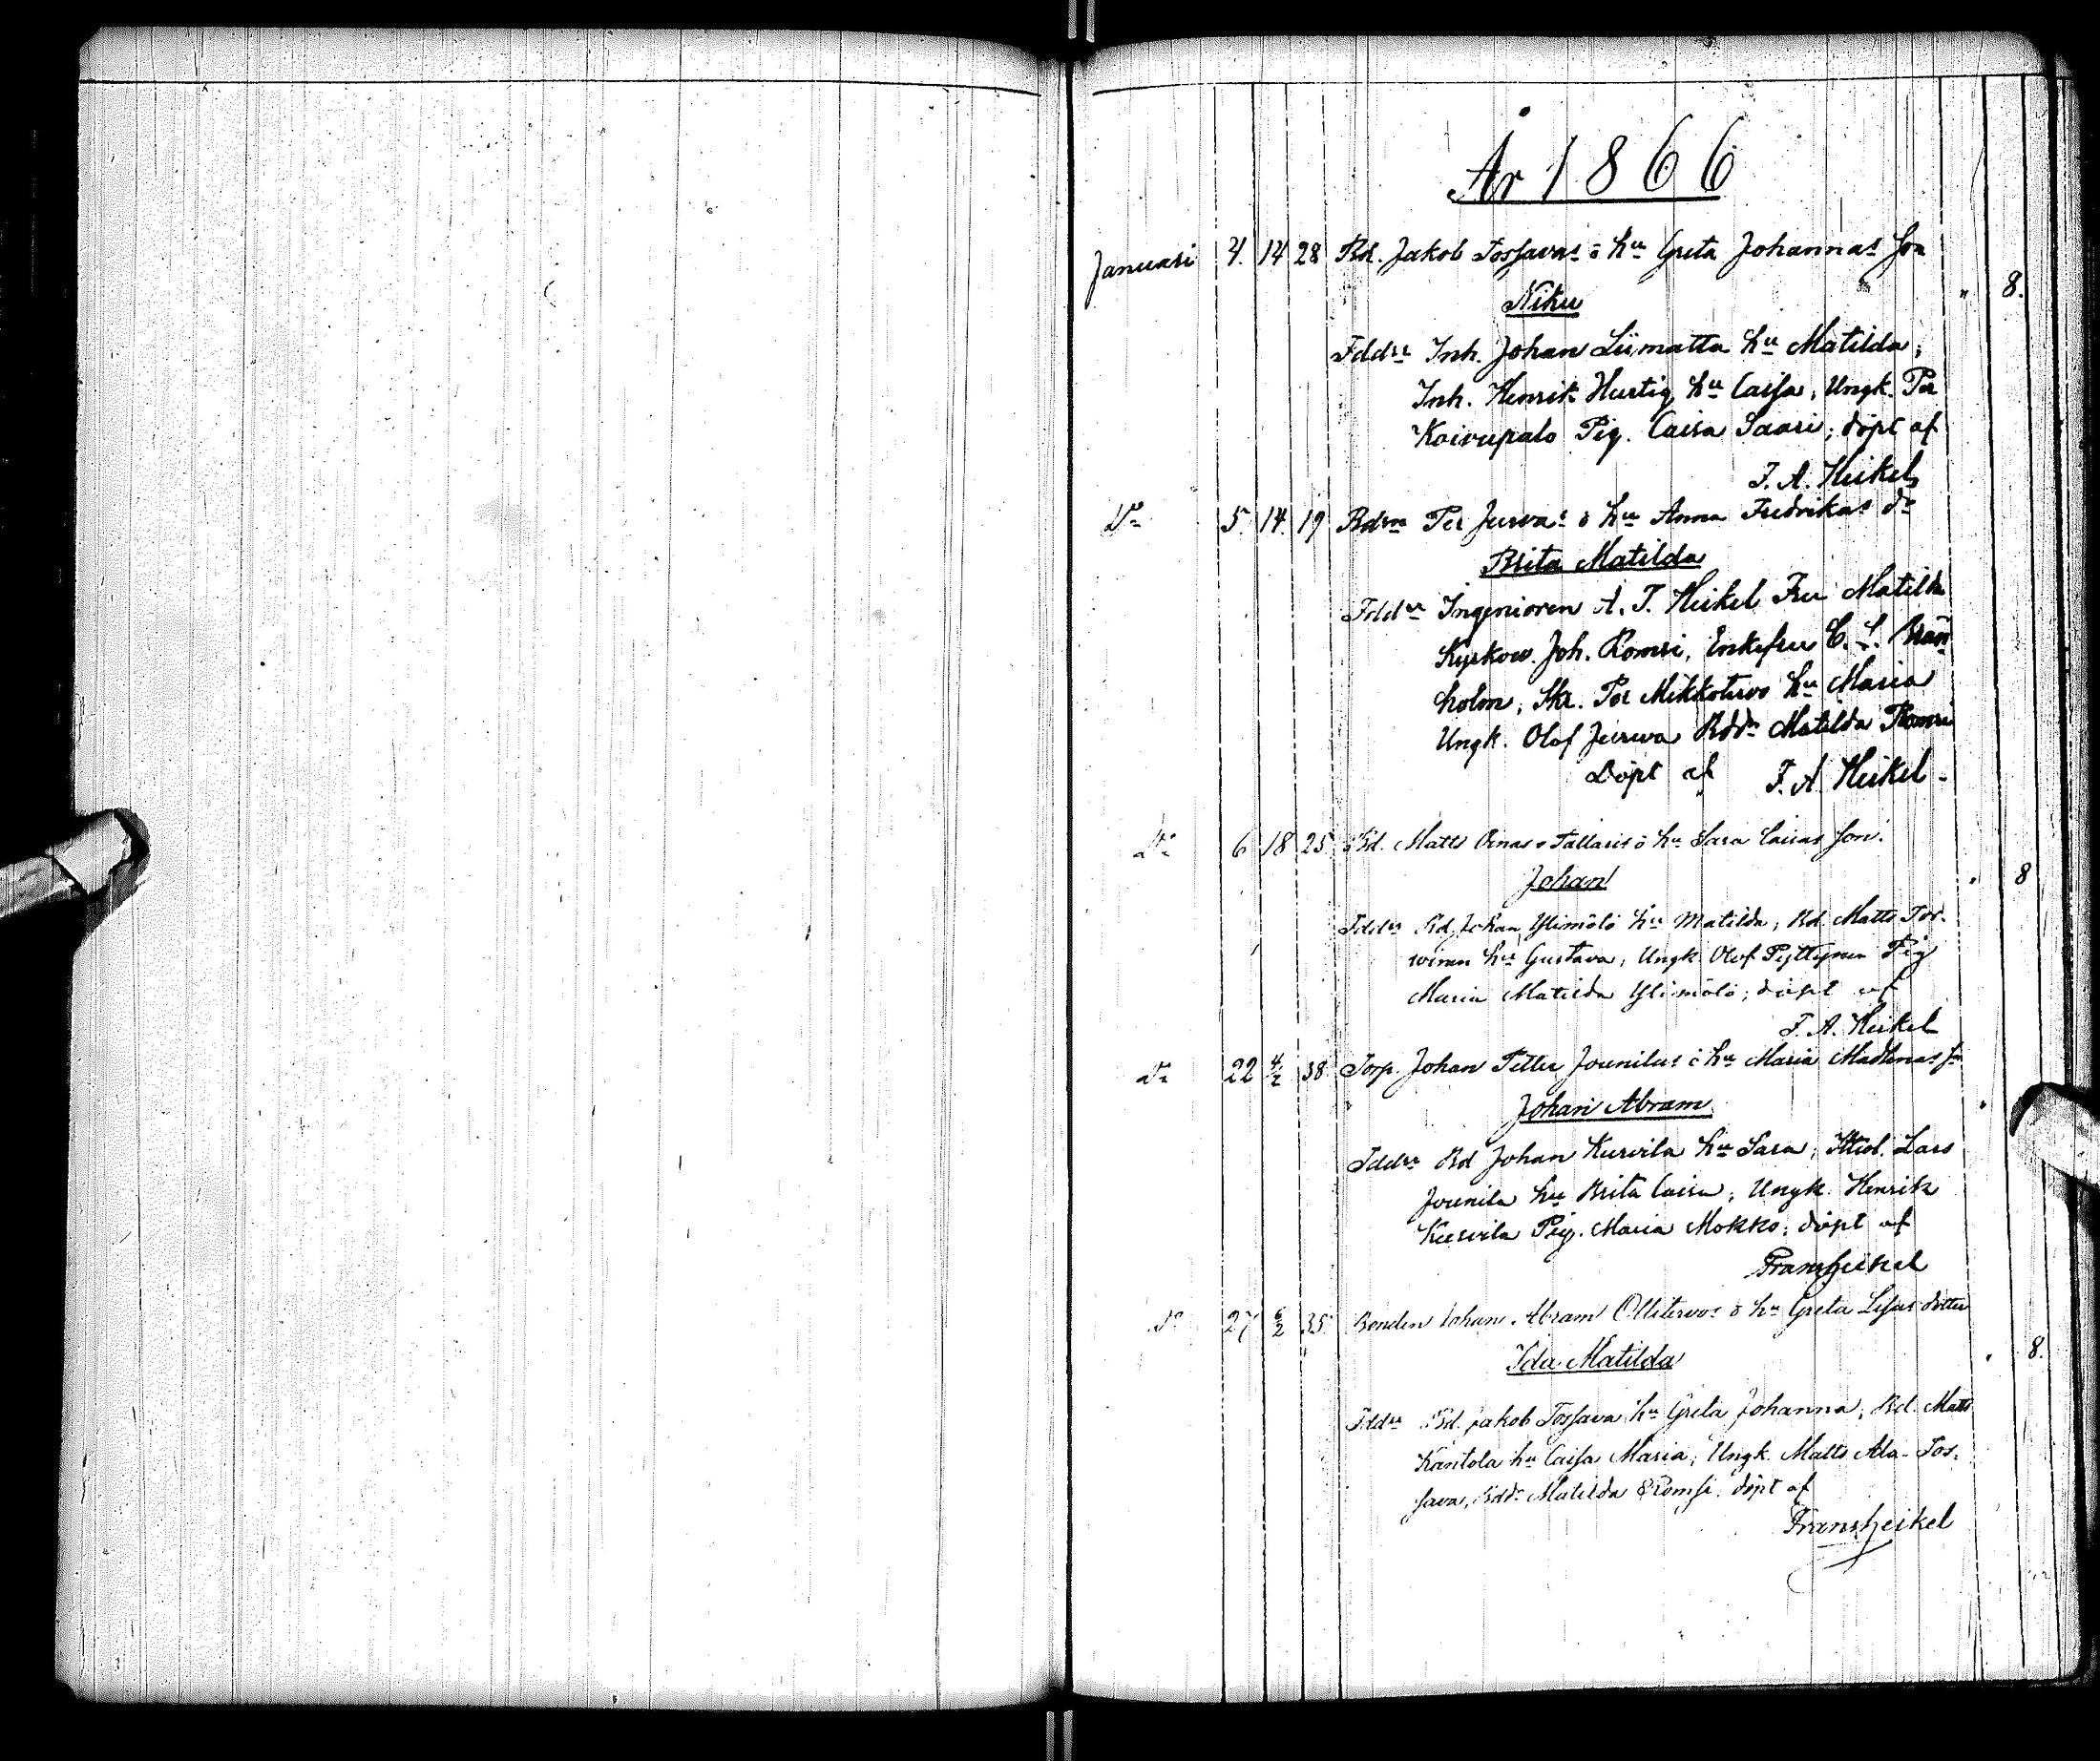 År 1866
Januari 4. 14 28 Bd. Jakob Tossavas o hu Greta Johannas son
Niku " 8.
Fddrr Inh. Johan Liimatta hu Matilda;
Inh. Henrik Hurtig hu Caisa, Ungk. Per
Koivupalo Pig. Caisa Saari; döpt af
F. A. Heikel
Do 5. 14. 19 Bdsn Per Jurvas o hu Anna Fredrikas dr
Brita Matilda
Fddrr Ingenioren A. T. Heikel Fru Matilda
Kyrkow. Joh. Romsi, Enkefru C. L.
holm, Skr. Per Mikkotervo hu Maria
Ungk. Olof Jurwa Bddr Matilda Romsi
Döpt af F. A. Heikel.
Do 6 18 25 Bd. Matts o hu Sara Caisas son
Johan " 8
Fddrr Bd. Johan Ylimölö hu Matilda, Bd. Matts Tor-
winen hu Gustava, Ungk. Olof Pyttynen Pig
Maria Matilda Ylimölö; döpt af
F. A. Heikel
Do 22 4/2 38 Torp. Johan Petter Jounilas o hu Maria Madlenas sn
Johan Abram "
Fddrr Bd Johan Kurvila hu Sara, Lars
Jounila hu Brita Caisa, Ungk. Henrik
Kurvila Pig. Maria Mokko; döpt af
Frans Heikel
Do 27 6/2 35 Bonden Johan Abram Ollitervos o hu Greta Lisas dotter
Ida Matilda " 8.
Fddrr Bd. Jakob Tossava hu Greta Johanna, Bd. Matts
Kantola hu Caisa Maria, Ungk. Matts Ala-Tos-
sava, Bddr Matilda Romsi, döpt af
Frans Heikel